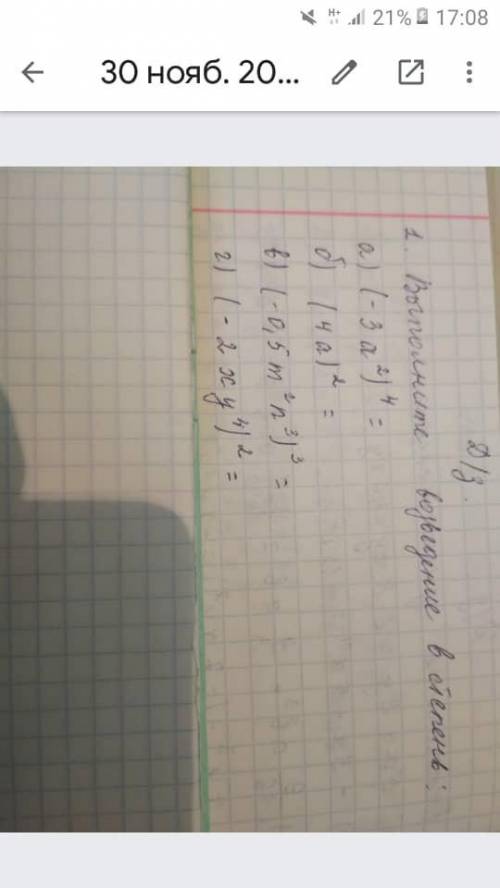 H+ 21% 17:08
30 нояб. 20...
Д/з.
1. Выполните возведение в степень:
а) (-3a²)⁴ =
б) (4a)² =
в) (-0,5m²n³)³ =
г) (-2xy⁴)² =